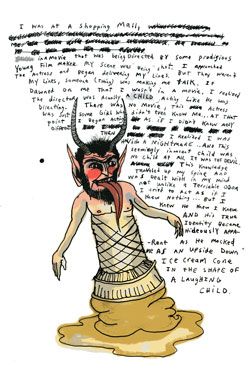 I was at a shopping mall,
in a movie that was being directed by some prodigious
young film maker. My scene was being shot. I approached
the actress and began delivering my lines. But they weren't
my lines, someone (thing) was making me talk. It
dawned on me that I wasn't in a movie. I realized
the director was actually a child acting like he was
directing. There was no movie, this actress
was just some girl who didn't even know me. At that
point I began acting as if I didn't know any
different. Then
I realize I was
with a nightmare. And this
seemingly innocent child was
no child at all. It was the devil.
This knowledge
traveled up my spine and
was dealt with in mind
not unlike a terrible odor
I tried to act as if I
knew nothing.. But I
knew he knew I knew
and his true
identity became
hideously appa-
-rent as he mocked
me as an upside down
ice cream cone
in the shape of
a laughing
child.